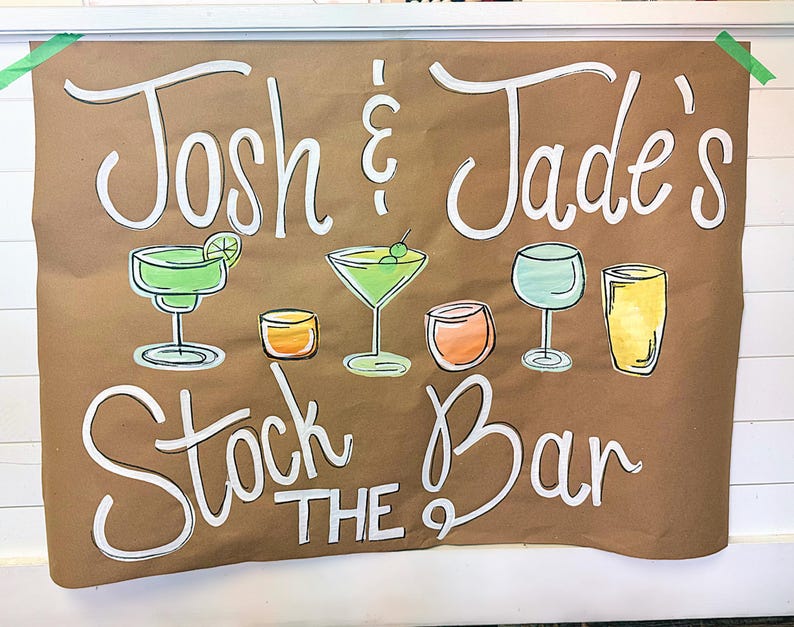 Josh & Jade's
Stock THE Bar